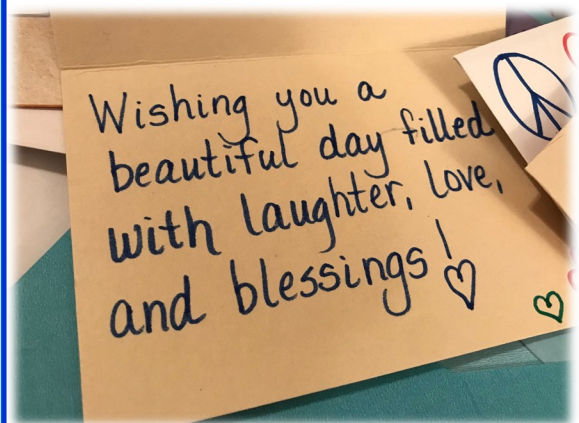 Wishing you a
beautiful day filled
with laughter, love,
and blessings!